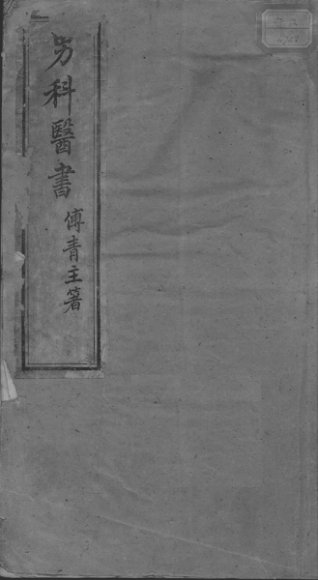 男科醫書
傅青主著